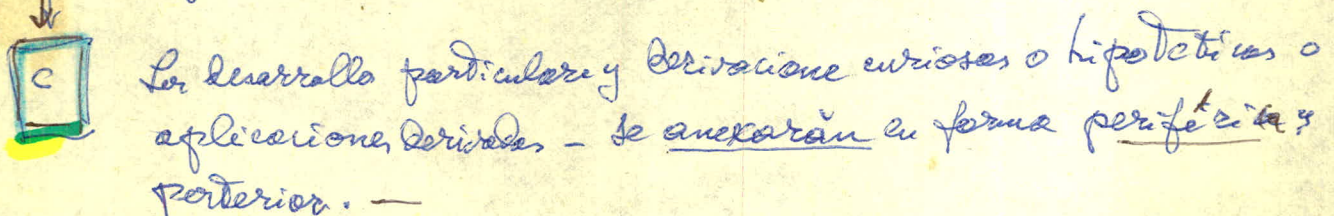 C Los desarrollo particulares y derivaciones curiosas o hipotéticas o
aplicaciones derivadas – se anexarán en forma periférica y
posterior. —